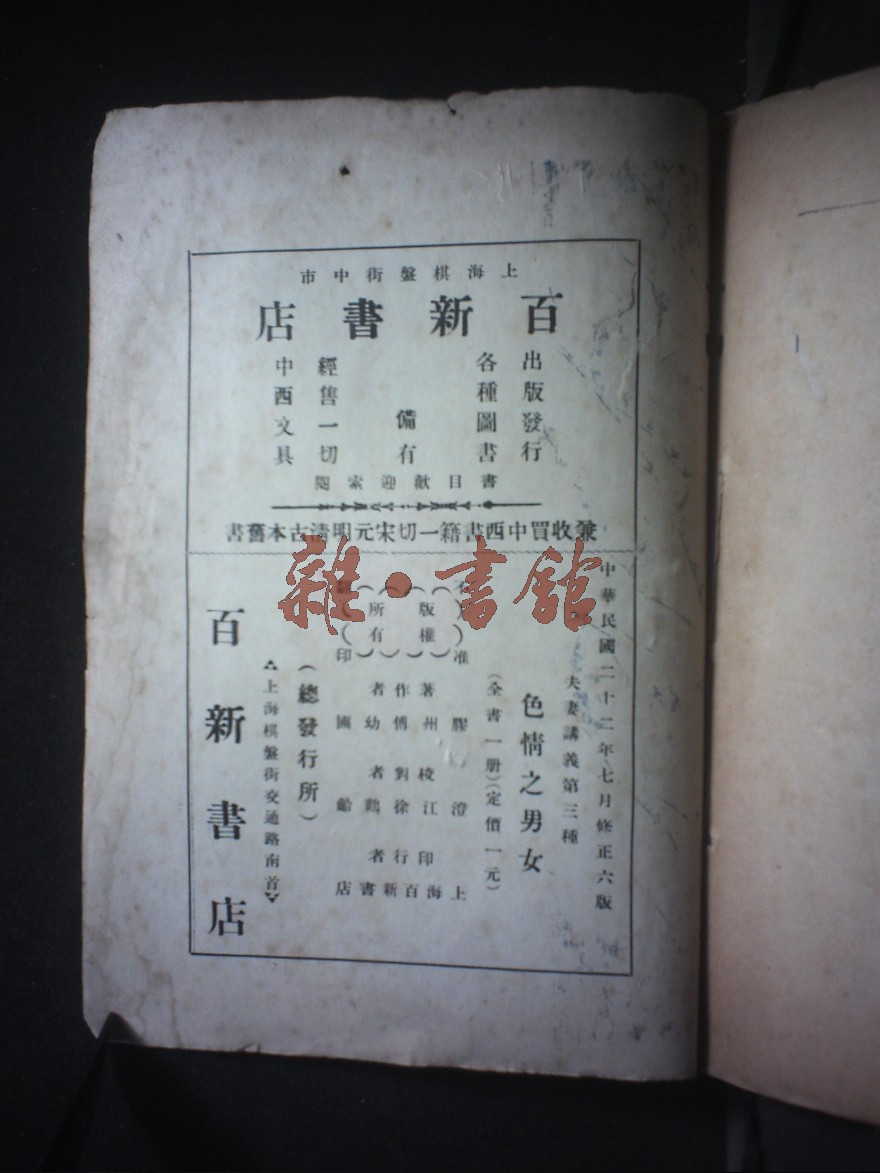 上海棋盤街中市
百新書店
出版發行
各種圖書
備有
經售一切
中西文具
書目歡迎索閱
兼收買中西書籍一切宋元明清古本舊書
雜·書館
中華民國二十二年七月修正六版
夫妻講義第三種
色情之男女
(全書一册)(定價一元)
版權
所有
著作者
膠州傅幼圃
校對者
澄江徐鶴齡
印行者
上海百新書店
(總發行所)
上海棋盤街交通路南首
百新書店